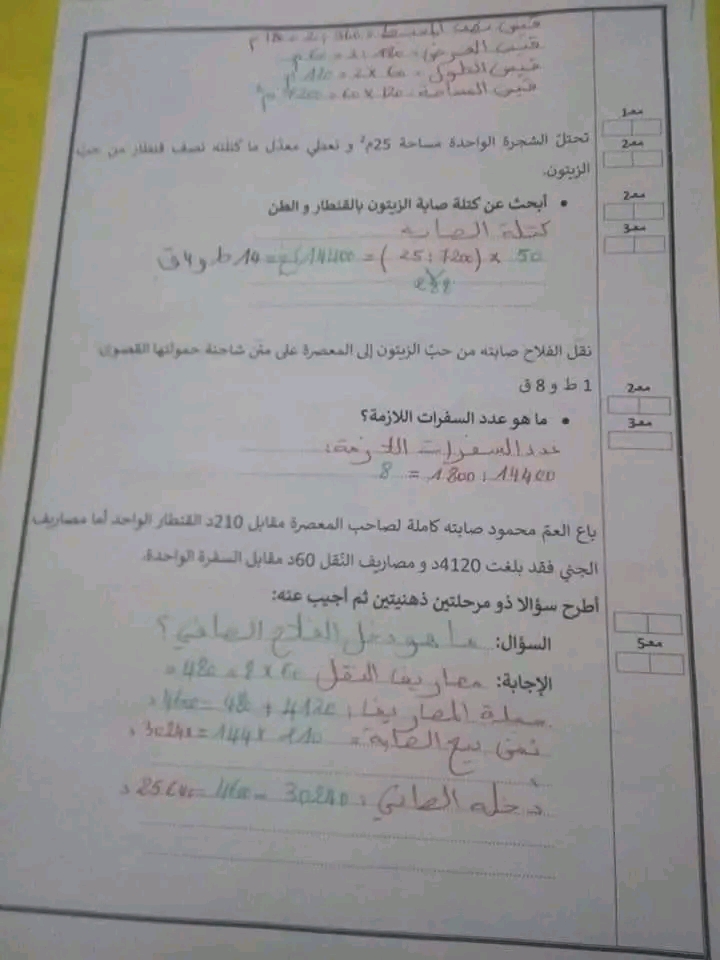 قيس نصف المحيط = 360 : 2 = 180 م
قيس العرض = 180 : 3 = 60 م
قيس الطول = 60 × 2 = 120 م
قيس المساحة = 120 × 60 = 7200 م²
معـ1
معـ2
تحتلّ الشجرة الواحدة مساحة 25م² و تعطي معدّل ما كتلته نصف قنطار من حبّ
الزيتون.
معـ2
• أبحث عن كتلة صابة الزيتون بالقنطار و الطن
معـ3
كتلة الصابة
50 × (7200 : 25) = 14400 كغ = 14 ط و 4 ق
288
نقل الفلاح صابته من حبّ الزيتون إلى المعصرة على متن شاحنة حمولتها القصوى
1 ط و 8 ق
معـ2
• ما هو عدد السفرات اللازمة؟
معـ3
عدد السفرات اللازمة:
14400 : 1800 = 8
باع العمّ محمود صابته كاملة لصاحب المعصرة مقابل 210د القنطار الواحد أما مصاريف
الجني فقد بلغت 4120د و مصاريف النّقل 60د مقابل السفرة الواحدة.
أطرح سؤالا ذو مرحلتين ذهنيتين ثم أجيب عنه:
السؤال: ما هو دخل الفلاح الصافي؟
معـ5
الإجابة: مصاريف النقل 60 × 8 = 480 د
جملة المصاريف: 4120 + 480 = 4600 د
ثمن بيع الصابة = 210 × 144 = 30240 د
دخله الصافي: 30240 – 4600 = 25640 د